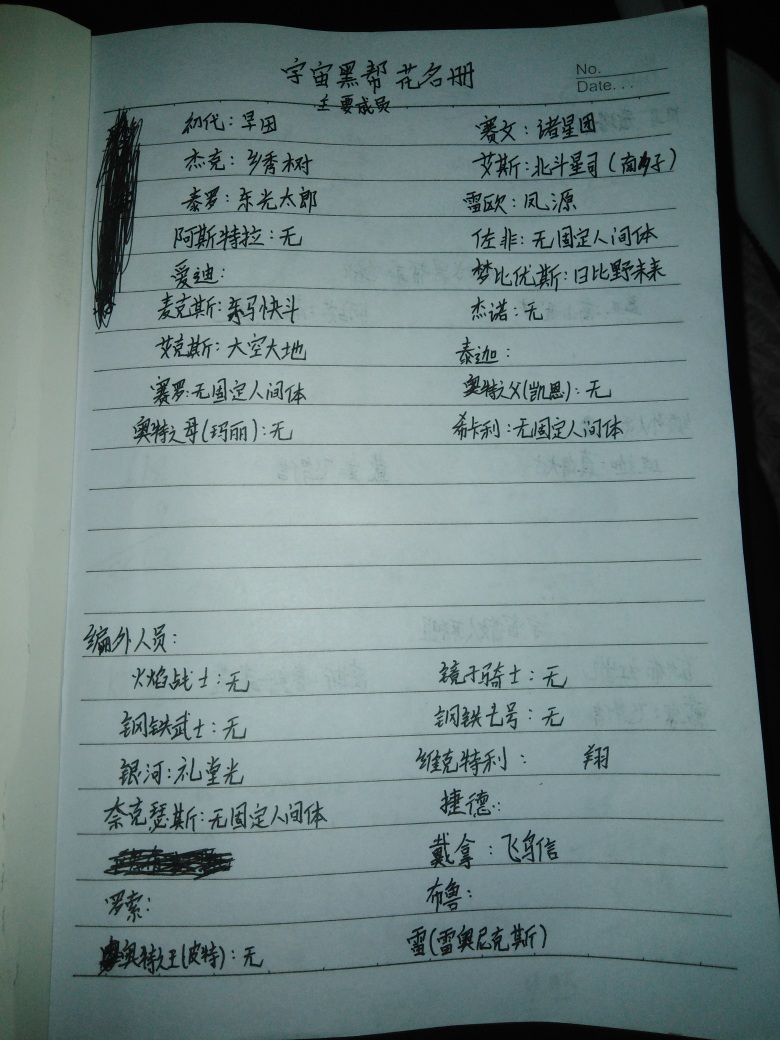 宇宙黑帮花名册
No.
Date. . .
主要成员
初代：早田 赛文：诸星团
杰克：乡秀树 艾斯：北斗星司（南夕子）
泰罗：东光太郎 雷欧：凤源
阿斯特拉：无 佐非：无固定人间体
爱迪： 梦比优斯：日比野未来
麦克斯：东马快斗 杰诺：无
艾克斯：大空大地 泰迦：
赛罗：无固定人间体 奥特之父(凯恩)：无
奥特之母(玛丽)：无 希卡利：无固定人间体
编外人员：
火焰战士：无 镜子骑士：无
钢铁武士：无 钢铁七号：无
银河：礼堂光 维克特利： 翔
奈克瑟斯：无固定人间体 捷德：
戴拿：飞鸟信
罗索： 布鲁：
奥特之王(皮特)：无 雷(雷奥尼克斯)